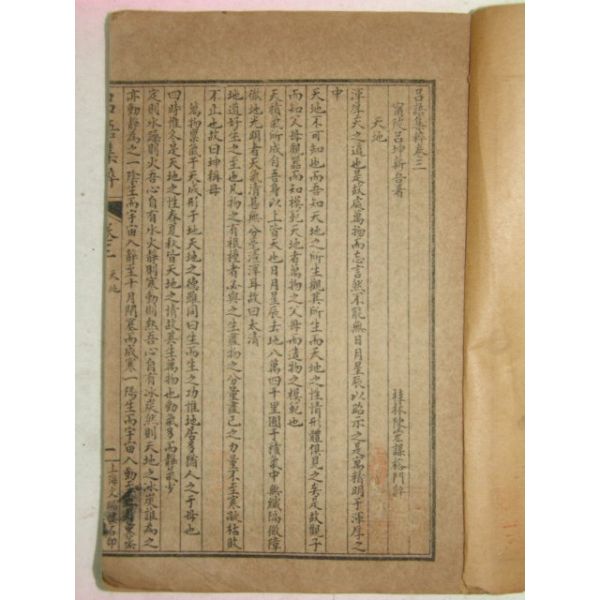 呂語集粹卷三
甯陵呂坤新吾著　桂林陳宏謀榕門評
天地
渾厚天之道也是故處萬物而忘言然不能無日月星辰以昭示之是寓精明于渾厚之
中
天地不可知也而吾知天地之所生觀其所生而天地之性情形體俱見之矣是故觀子
而知父母觀器而知模範天地者萬物之父母而造物之模範也
天積氣所成自吾身以上皆天也日月星辰去地八萬四千里囿于積氣中無纖隔微障
徹地光明者天氣清甚無分毫渣滓耳故曰太清
地道好生之至也凡物之有根種者必與之生盡物之分量盡己之力量不至寒凝枯敗
不止也故曰坤稱母
萬物稟氣于天成形于地天地之德雖同曰生而生之功惟地居多猶人之于母也
四時惟冬是天地之性春夏秋皆天地之情故其生萬物也動氣多而靜氣少
定則水躁則火吾心自有水火靜則寒動則熱吾心自有冰炭然則天地之冰炭誰為之
亦動靜為之一陰生而宇宙入靜至十月閉塞而成寒一陽生而宇宙入動
呂語集粹
卷三　天地
一